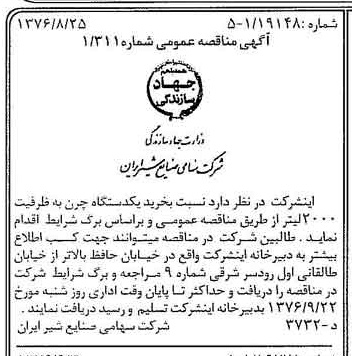 شماره :۵-۱/۱۹۱۴۸ ۱۳۷۶/۸/۲۵
آگهی مناقصه عمومی شماره ۱/۳۱۱
همه با هم
جهاد
سازندگی
وزارت جهاد سازندگی
شرکت سهامی صنایع شیر ایران
اینشرکت در نظر دارد نسبت بخرید یکدستگاه چرن به ظرفیت
۲۰۰۰لیتر از طریق مناقصه عمومی و براساس برگ شرایط اقدام
نماید . طالبین شرکت در مناقصه میتوانند جهت کسب اطلاع
بیشتر به دبیرخانه اینشرکت واقع در خیابان حافظ بالاتر از خیابان
طالقانی اول رودسر شرقی شماره ۹ مراجعه و برگ شرایط شرکت
در مناقصه را دریافت و حداکثر تا پایان وقت اداری روز شنبه مورخ
۱۳۷۶/۹/۲۲ بدبیرخانه اینشرکت تسلیم و رسید دریافت نمایند .
د-۳۷۳۲ شرکت سهامی صنایع شیر ایران